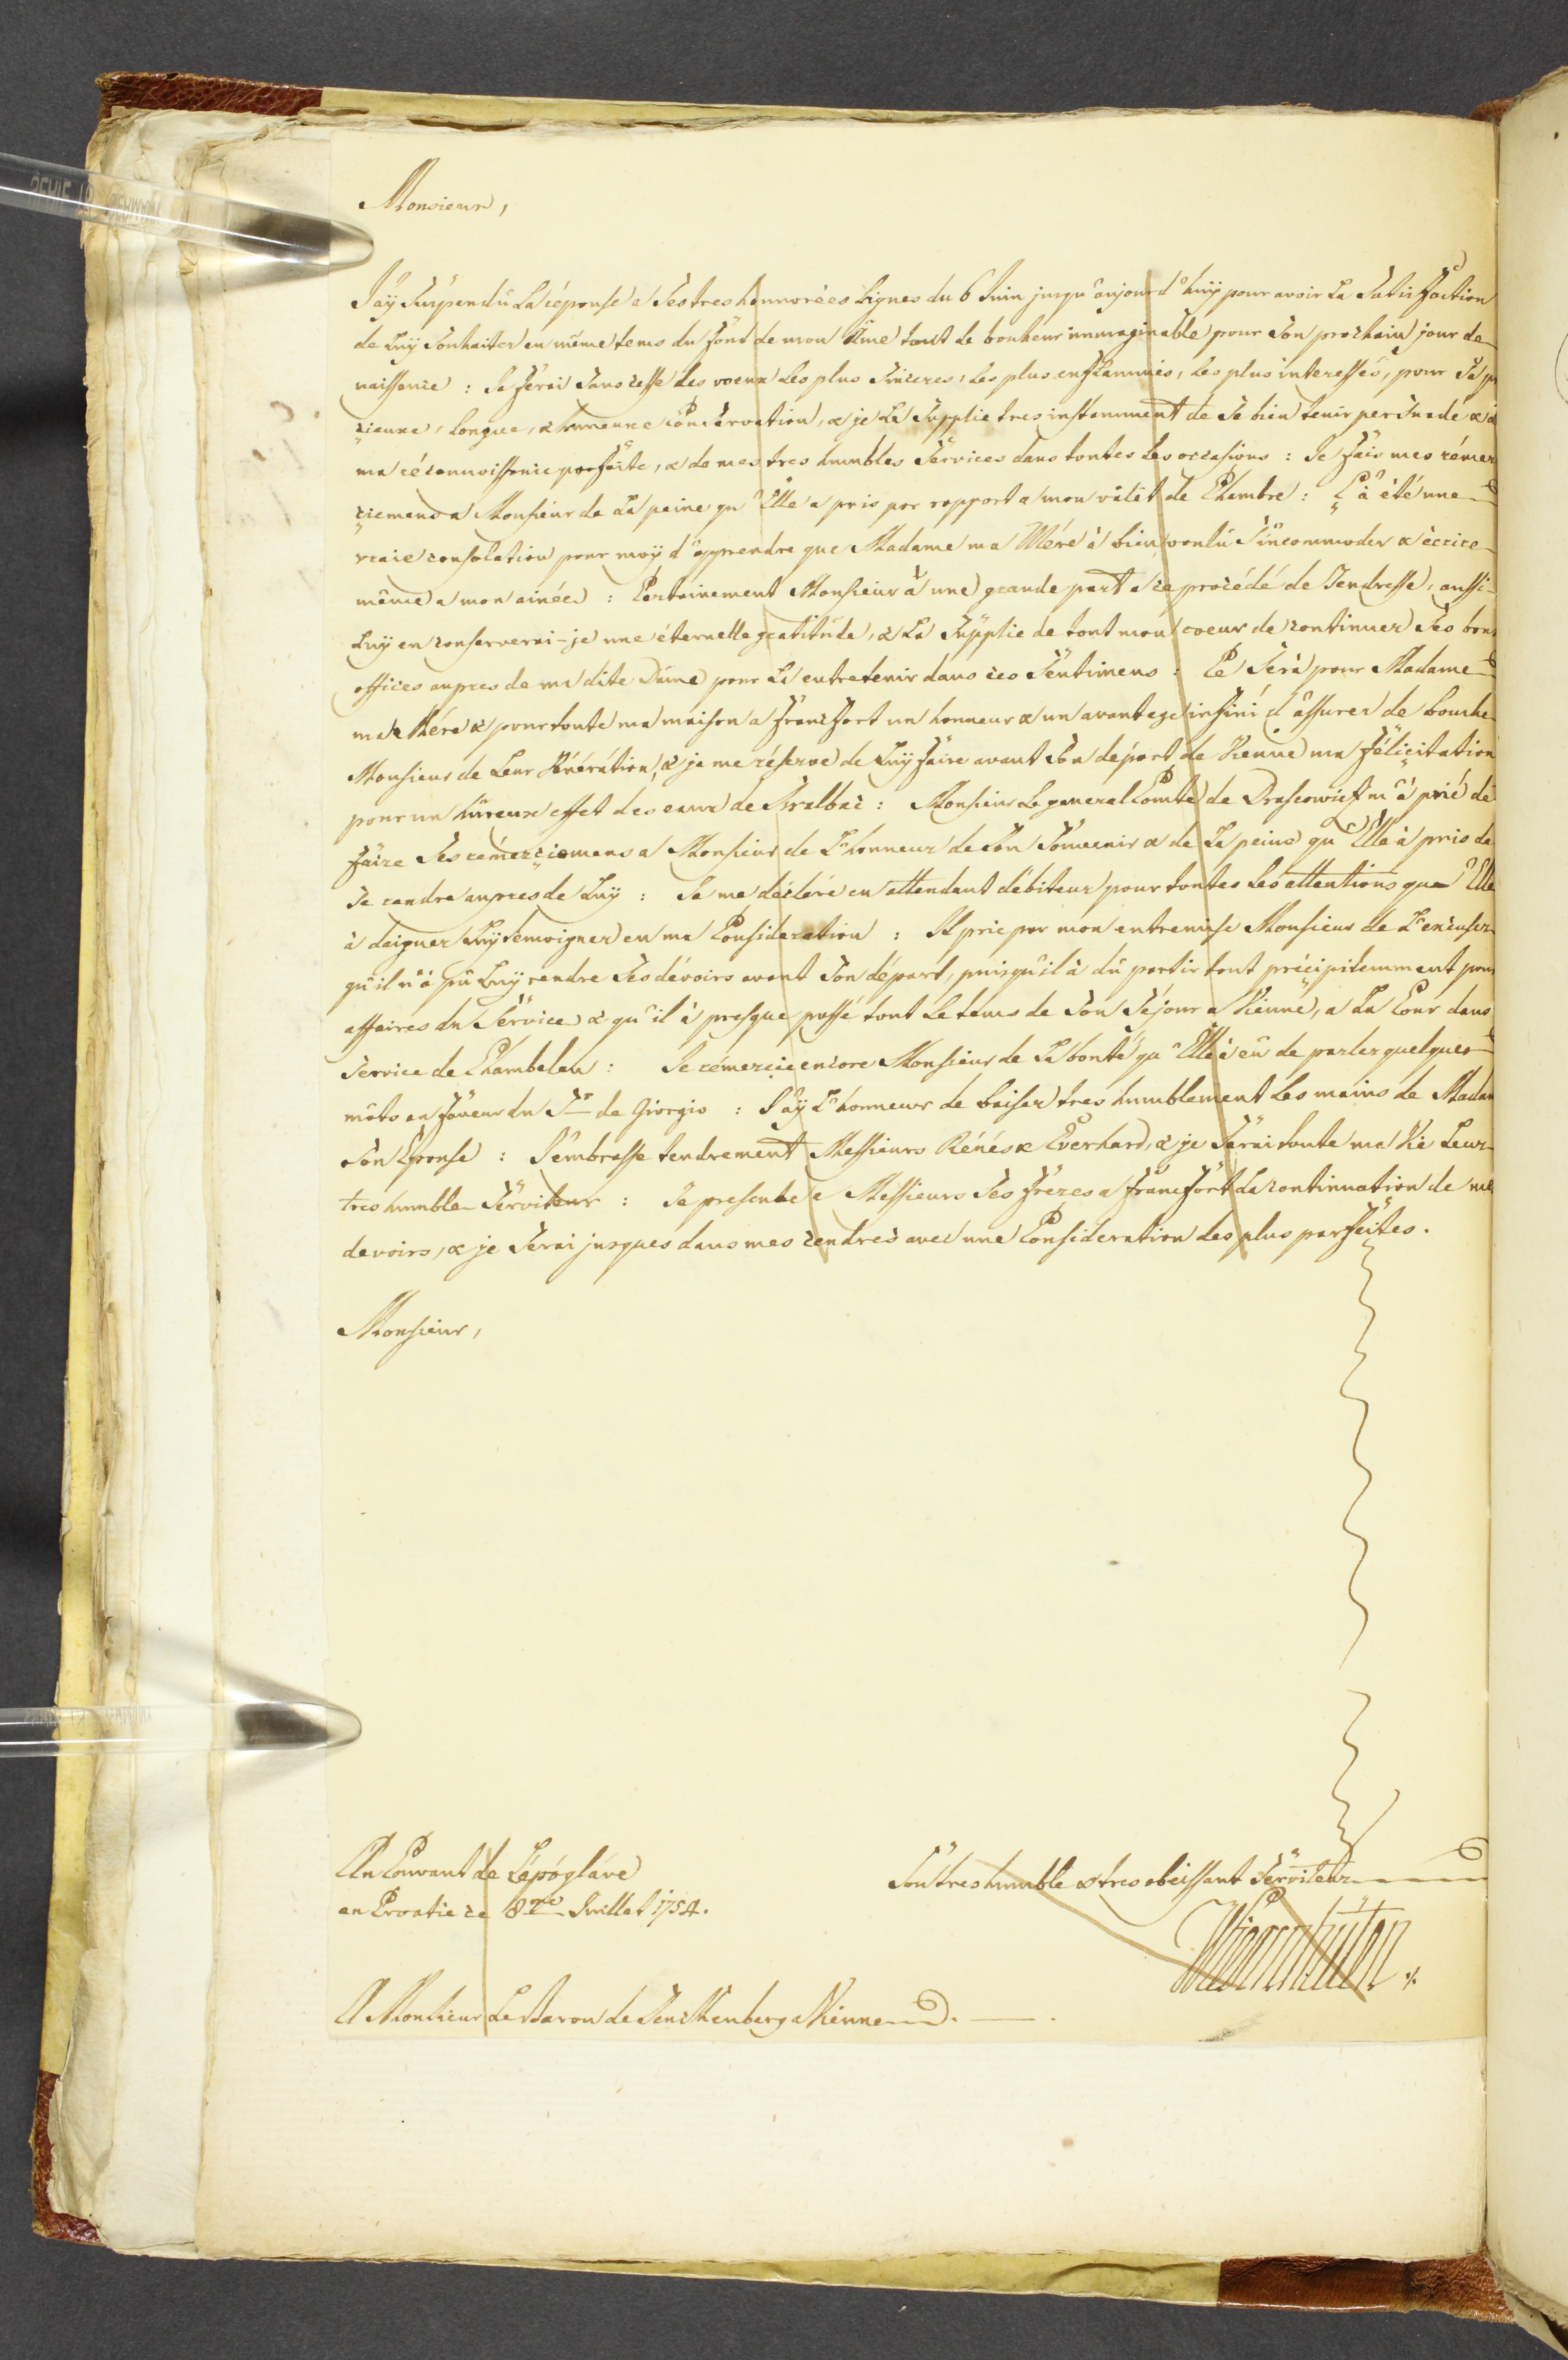 Monsieur,
J'aÿ Suspendû La réponse a Ses tres honnorées Lignes du 6 Juin jusqu'aujourd'huÿ pour avoir La Satisfaction
de Luÿ Souhaiter en même tems du fond de mon Âme tout le bonheur immaginable pour Son prochain jour de
naissance : Je ferai Sans cesse des voeux Les plus Sinceres, Les plus enflammés, Les plus interessés, pour Sa
cieuse, Longue, & hureuse Conservation, & je La Supplie tres instamment de Se bien tenir persuadé &
ma réconnoissance parfaite, & de mes tres humbles Services dans toutes Les occasions : Je fais mes rémer
ciemens a Monsieur de La peine qu'Elle a pris par rapport a mon välét de Chambre : Ç'a été une
vraie consolation pour moÿ d'apprendre que Madame ma Mére à bien voulû S'incommoder & écrire
même a mon ainée : Certainement Monsieur à une grande part a ce procédé de Tendresse, aussi
Luÿ en conserverai-je une éternelle gratitude, & La Supplie de tout mon coeur de continuer Ses bons
offices aupres de ma dite Dame pour La entretenir dans ces Sentimens : Ce Sera pour Madame
ma Mére & pour toute ma maison a francfort un honneur & un avantage infini d'assurer de bouche
Monsieur de Leur Vénération, & je me réserve de Luÿ faire avant Son départ de Vienne ma félicitation
pour un hûreux effet des eaux de : Monsieur Le general Comte de m'à prié de
faire Ses rémerciemens a Monsieur de L'honneur de Son Souvenir & de La peine qu'Elle à pris de
Se rendre aupres de Luÿ : Je me déclare en attendant débiteur pour toutes Les attentions que Elle
à daigner Luÿ temoigner en ma Consideration : Il prie par mon entremise Monsieur de L'excuser
qu'il n'à pû Luÿ rendre Ses dévoirs avant Son départ, puisqu'il à dû partir tout précipitemment pour
affaires du Service & qu'il à presque passé tout Le tems de Son Sejour a Vienne, a La Cour dans
Service de Chambelan : Je rémercie encore Monsieur de La bonté qu'Elle à eû de parler quelques
môts en faveur du Sr de Giorgio : J'aÿ L'honneur de baiser tres humblement Les mains de Madam
Son Epouse : J'embrasse tendrement Messieurs Rénés & Everhard, & je Serai toute ma Vie Leur
tres humble Serviteur : Je presente a Messieurs Ses frères a francfort La continuation de me
devoirs, & je Serai jusques dans mes cendres avec une Consideration des plus parfaites.
Monsieur,
Au Couvant de Lépógláve
en Croatie ce 8me Juillet 1754.
Son tres humble & tres obeissant Serviteur
A Monsieur Le Baron de Senckenberg a Vienne.